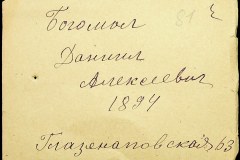 81
Богомол
Даниил
Алексеевич
1894
Глазенаповская 63